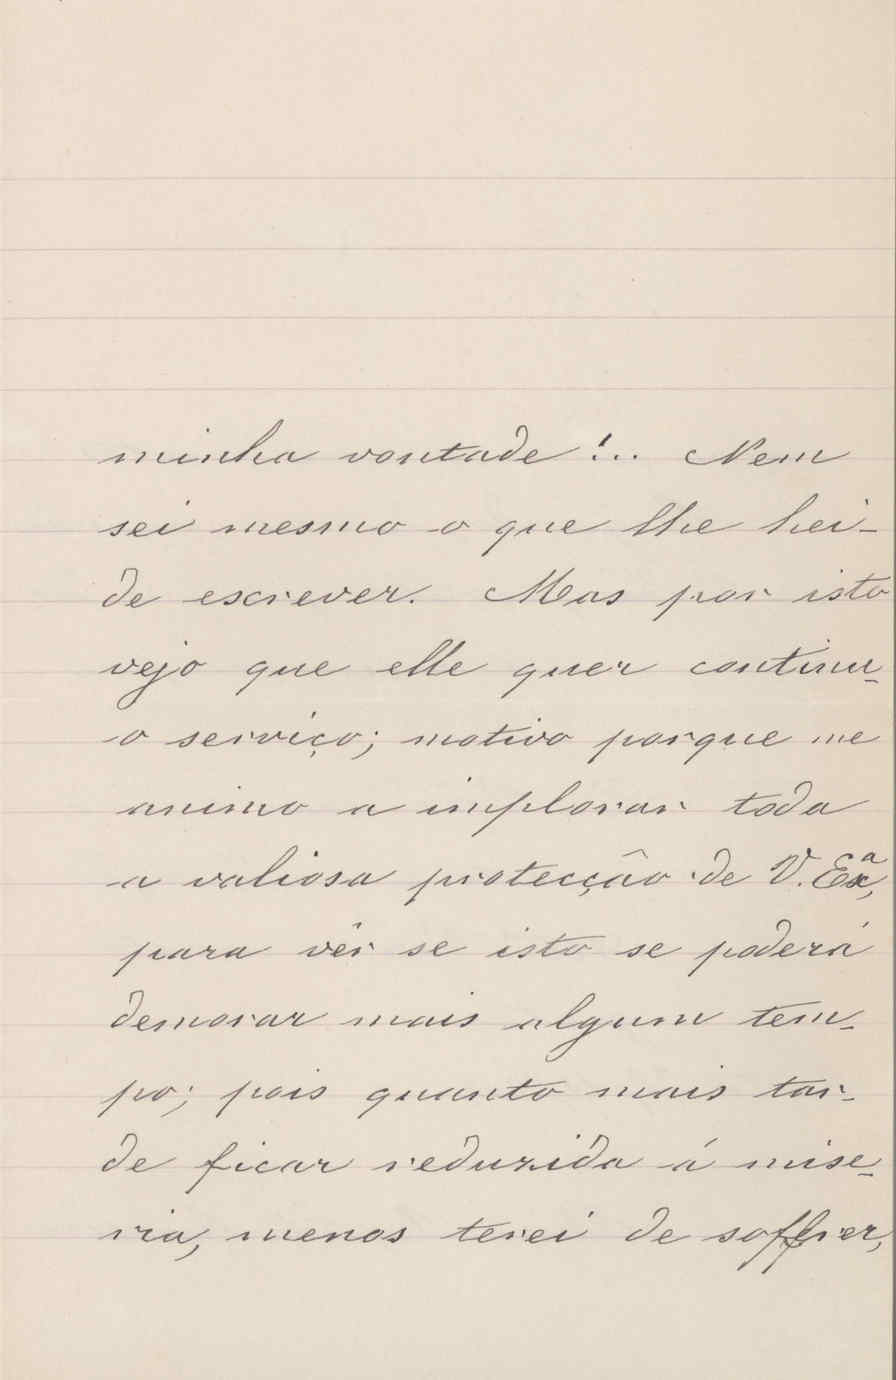 minha vontade!.. Nem
sei mesmo o que lhe hei-
de escrever. Mas por isto
vejo que elle quer continu-
o serviço; motivo porque me
animo a implorar toda
a valiosa protecção de V. Exª,
para vêr se isto se poderá
demorar mais algum tem-
po; pois quanto mais tar-
de ficar reduzida á mise-
ria, menos terei de soffrer,